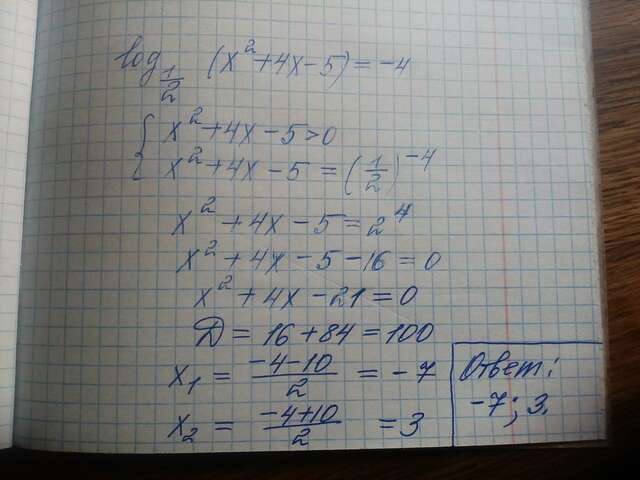 log_{1/2} (x² + 4x - 5) = -4
{ x² + 4x - 5 > 0
x² + 4x - 5 = (1/2)^{-4}
x² + 4x - 5 = 2⁴
x² + 4x - 5 - 16 = 0
x² + 4x - 21 = 0
D = 16 + 84 = 100
x₁ = (-4-10)/2 = -7
x₂ = (-4+10)/2 = 3
Ответ:
-7; 3.